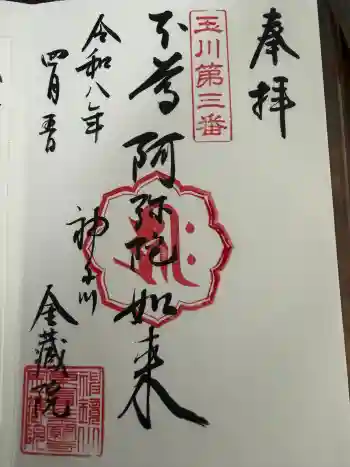 奉拝
玉川第三番
本尊阿弥陀如来
令和八年
四月五日
神奈川
金蔵院